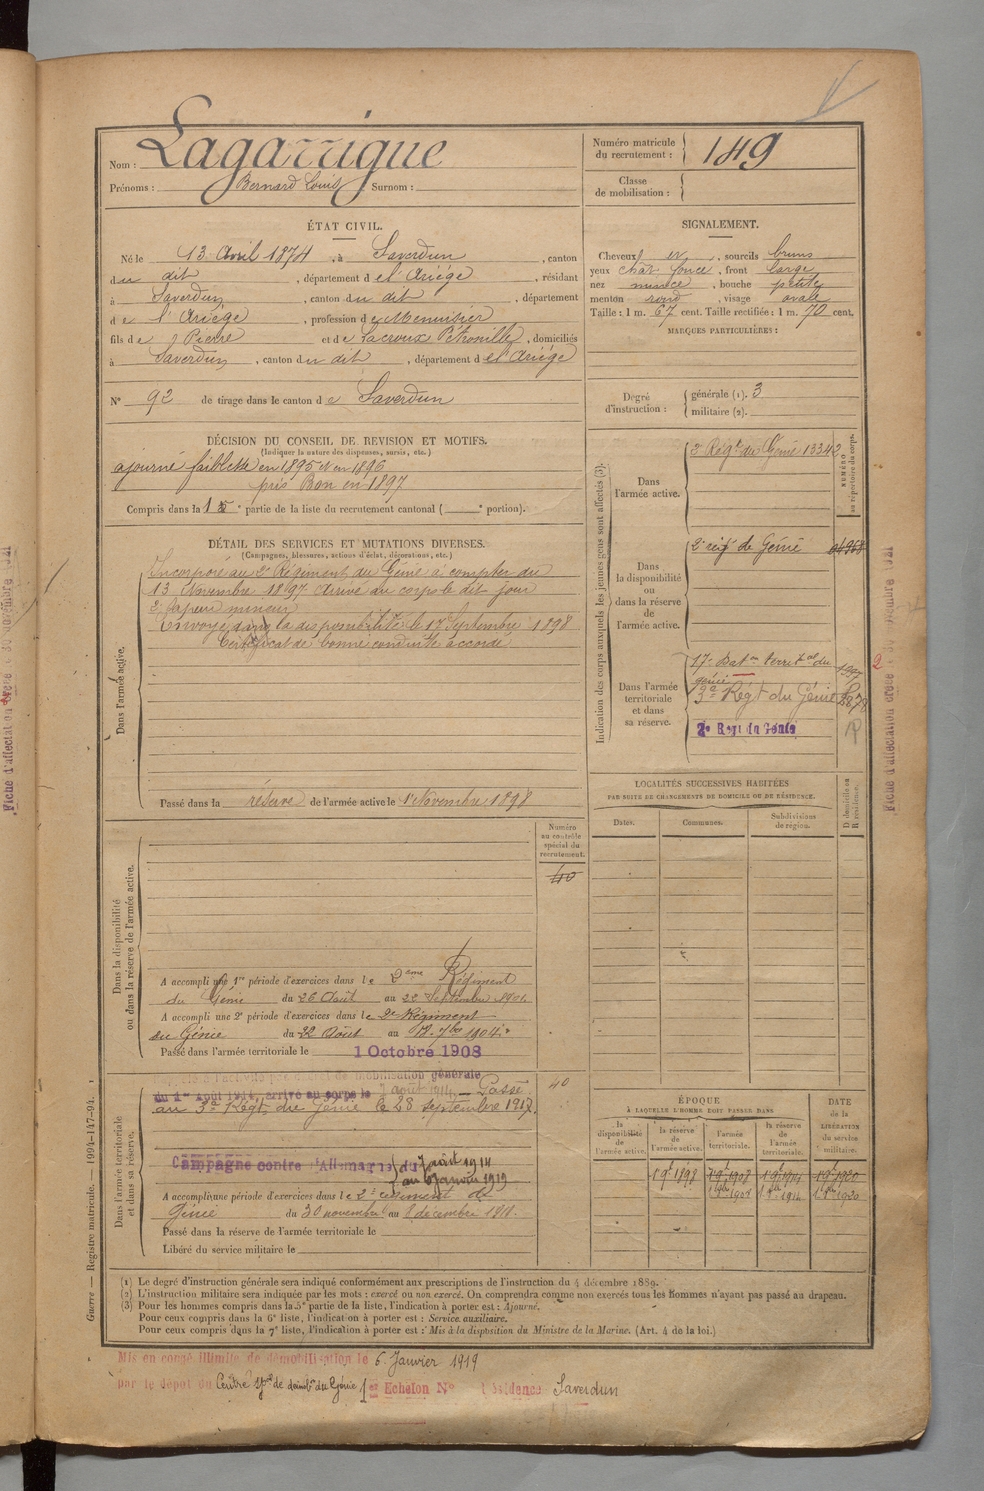 Nom : Lagarrigue
Prénoms : Bernard Louis Surnom :
Numéro matricule du recrutement : 149
Classe de mobilisation :
ÉTAT CIVIL.
Né le 13 Avril 1874, à Saverdun, canton
du dit, département de l'Ariége, résidant
à Saverdun, canton du dit, département
de l'Ariége, profession de Menuisier
fils de Pierre et de Lacroux Pétronille, domiciliés
à Saverdun, canton du dit, département de l'Ariége
N° 92 de tirage dans le canton de Saverdun
SIGNALEMENT.
Cheveux, sourcils bruns
yeux chat. foncé, front large
nez mince, bouche petite
menton rond, visage ovale
Taille : 1 m. 67 cent. Taille rectifiée : 1 m. 70 cent.
MARQUES PARTICULIÈRES :
Degré d'instruction : générale (1). 3
militaire (2).
DÉCISION DU CONSEIL DE REVISION ET MOTIFS.
(Indiquer la nature des dispenses, sursis, etc.)
ajourné faiblesse en 1895 et en 1896
pris Bon en 1897
Compris dans la 1 e partie de la liste du recrutement cantonal ( e portion).
DÉTAIL DES SERVICES ET MUTATIONS DIVERSES.
(Campagnes, blessures, actions d'éclat, décorations, etc.)
Dans l'armée active.
Incorporé au 2e Régiment du Génie à compter du
13 Novembre 1897 arrivé au corps le dit jour
2e sapeur mineur
Envoyé dans la disponibilité le 17 Septembre 1898
Certificat de bonne conduite accordé
Passé dans la réserve de l'armée active le 1er Novembre 1898
Indication des corps auxquels les jeunes gens sont affectés (3).
NUMÉRO au répertoire du corps.
Dans l'armée active.
2e Régt du Génie 13342
Dans la disponibilité ou dans la réserve de l'armée active.
2e régt de Génie
Dans l'armée territoriale et dans sa réserve.
17e Baton territal du génie
3e Régt du Génie
2e Regt du Génie
LOCALITÉS SUCCESSIVES HABITÉES
PAR SUITE DE CHANGEMENTS DE DOMICILE OU DE RÉSIDENCE.
Dates. Communes. Subdivisions de région. D domicile ou R résidence.
Numéro au contrôle spécial du recrutement.
40
Dans la disponibilité ou dans la réserve de l'armée active.
A accompli une 1re période d'exercices dans le 2eme Régiment
du Génie du 26 Août au 22 Septembre 1901
A accompli une 2e période d'exercices dans le 2e Régiment
du Génie du 22 Août au 7bre 1904
Passé dans l'armée territoriale le 1 Octobre 1908
Dans l'armée territoriale et dans sa réserve.
40
mobilisation générale
du 1er Août 1914, arrivé au corps le 7 août 1914. Passé
au 3e Régt du Génie le 28 septembre 1917.
Campagne contre l'Allemagne du 7 août 1914
au 6 janvier 1919
A accompli une période d'exercices dans le 2e régiment de
Génie du 30 novembre au 8 décembre 1911.
Passé dans la réserve de l'armée territoriale le
Libéré du service militaire le
ÉPOQUE
À LAQUELLE L'HOMME DOIT PASSER DANS
DATE de la LIBÉRATION du service militaire.
la disponibilité de l'armée active. la réserve de l'armée active. l'armée territoriale. la réserve de l'armée territoriale.
1 9e 1898 1 9e 1908 1 9e 1914 1 9e 1920
(1) Le degré d'instruction générale sera indiqué conformément aux prescriptions de l'instruction du 4 décembre 1889.
(2) L'instruction militaire sera indiquée par les mots : exercé ou non exercé. On comprendra comme non exercés tous les hommes n'ayant pas passé au drapeau.
(3) Pour les hommes compris dans la 5e partie de la liste, l'indication à porter est : Ajourné.
Pour ceux compris dans la 6e liste, l'indication à porter est : Service auxiliaire.
Pour ceux compris dans la 7e liste, l'indication à porter est : Mis à la disposition du Ministre de la Marine. (Art. 4 de la loi.)
Guerre — Registre matricule. — 1994-147-94.
Mis en congé illimité de démobilisation le 6 Janvier 1919
par le dépôt du Centre de démobn du Génie 1er Echelon N° résidence Saverdun